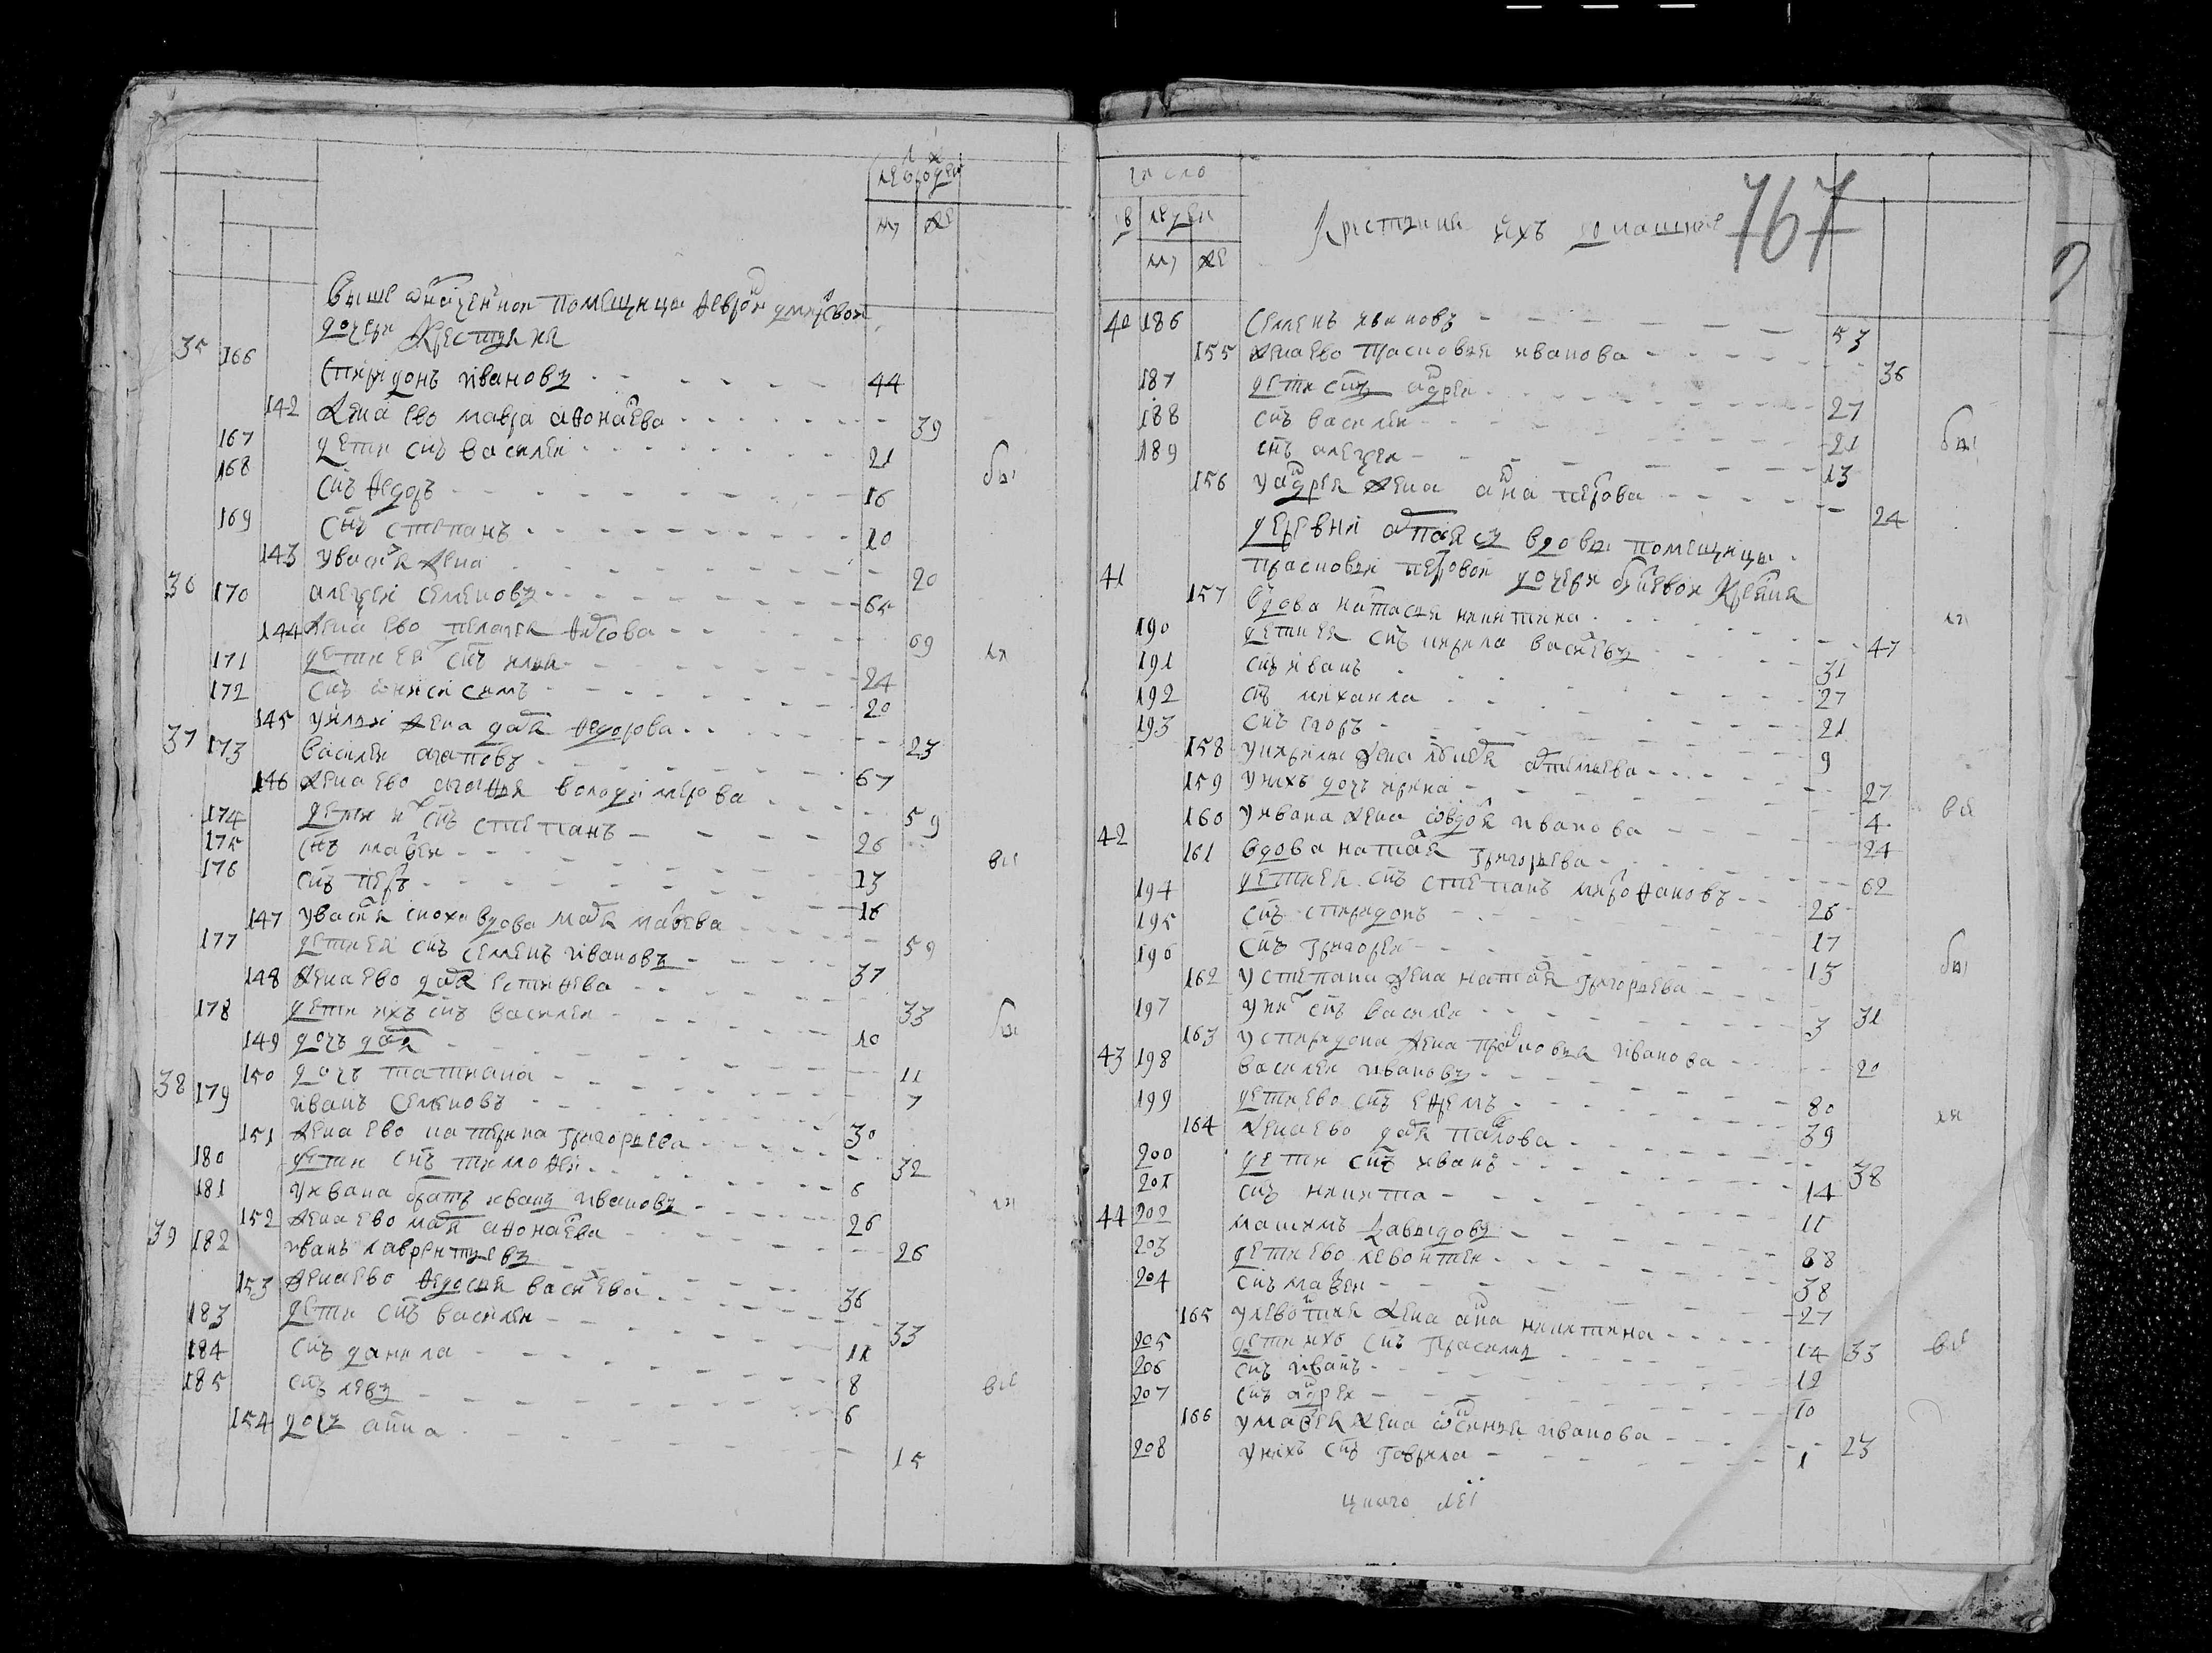 лѣта
от рожден
му же
выше означенной помещицы Авдоти дмитревой
дочери Крестьяня
35 166 Спиридонъ ивановъ 44
142 жена ево мавра афонасева 39
167 дети снъ василеи 21
168 снъ федоръ 16 бы
169 снъ степанъ 10
143 у василя жена 20
36 170 алеѯеи семеновъ 65
144 жена ево пелагея 69
171 дети ея снъ илья 24 ля
172 снъ анисимъ 20
145 у ильи жена дарья федорова 23
37 173 василеи агаповъ 67
146 жена ево агафья володимерова 59
174 дети их снъ степанъ 26
175 снъ матвеи 13 вы
176 снъ петръ 16
147 у василя сноха вдова марья матвева 59
177 дети ея снъ семенъ ивановъ 37
148 жена ево дарья естифева 33
178 дети ихъ снъ василеи 10 бы
149 дочь дарья 11
150 дочь татиана 7
38 179 иванъ семеновъ 30
151 жена ево катерина григорьева 32
180 дети снъ тимофеи 6
181 у ивана братъ иванъ ивановъ 26 ля
152 жена ево марья афонасева 26
39 182 иванъ лаврентьевъ 36
153 жена ево федосья василева 33
183 дети снъ василеи 11
184 снъ данила 8 вы
185 снъ левъ 6
154 дочь анна 15
число
дв людеи
му же
Крестьяне ихъ домашние
767
40 186 Семенъ ивановъ 53
155 жена ево прасковья иванова 36
187 дети снъ андреи 27
188 снъ василеи 21 бы
189 снъ алеѯеи 13
156 у андрея жена анна петрова 24
деревни вдовы помещицы
41 прасковьи петровой дочери крестьяня
157 вдова настасья никитина 47 ля
190 дети ея снъ кирила василевъ 31
191 снъ иванъ 27
192 снъ михаила 21
193 снъ егоръ 9
158 у кирилы жена артемьева 27
159 у нихъ дочь ирина 4 вы
160 у ивана жена авдотья иванова 24
42 161 вдова наталья григорьева 62
194 дети ея снъ степанъ мирофановъ 26
195 снъ спиридонъ 17
196 снъ григореи 13 бы
162 у степана жена наталья григорьева 31
197 у них снъ василеи 3
163 у спиридона жена прасковья иванова 20
43 198 василеи ивановъ 80
199 дети ево снъ ефремъ 39 ля
164 жена ево дарья павлова 38
200 дети снъ иванъ 14
201 снъ никита 11
44 202 максимъ давыдовъ 88
203 дети ево левонтеи 38
204 снъ матвеи 27
165 у левонтия жена анна никитина 33 вы
205 дети ихъ снъ 14
206 снъ иванъ 12
207 снъ андреи 10
166 у матвея жена аксинья иванова 23
208 у нихъ снъ гаврила 1